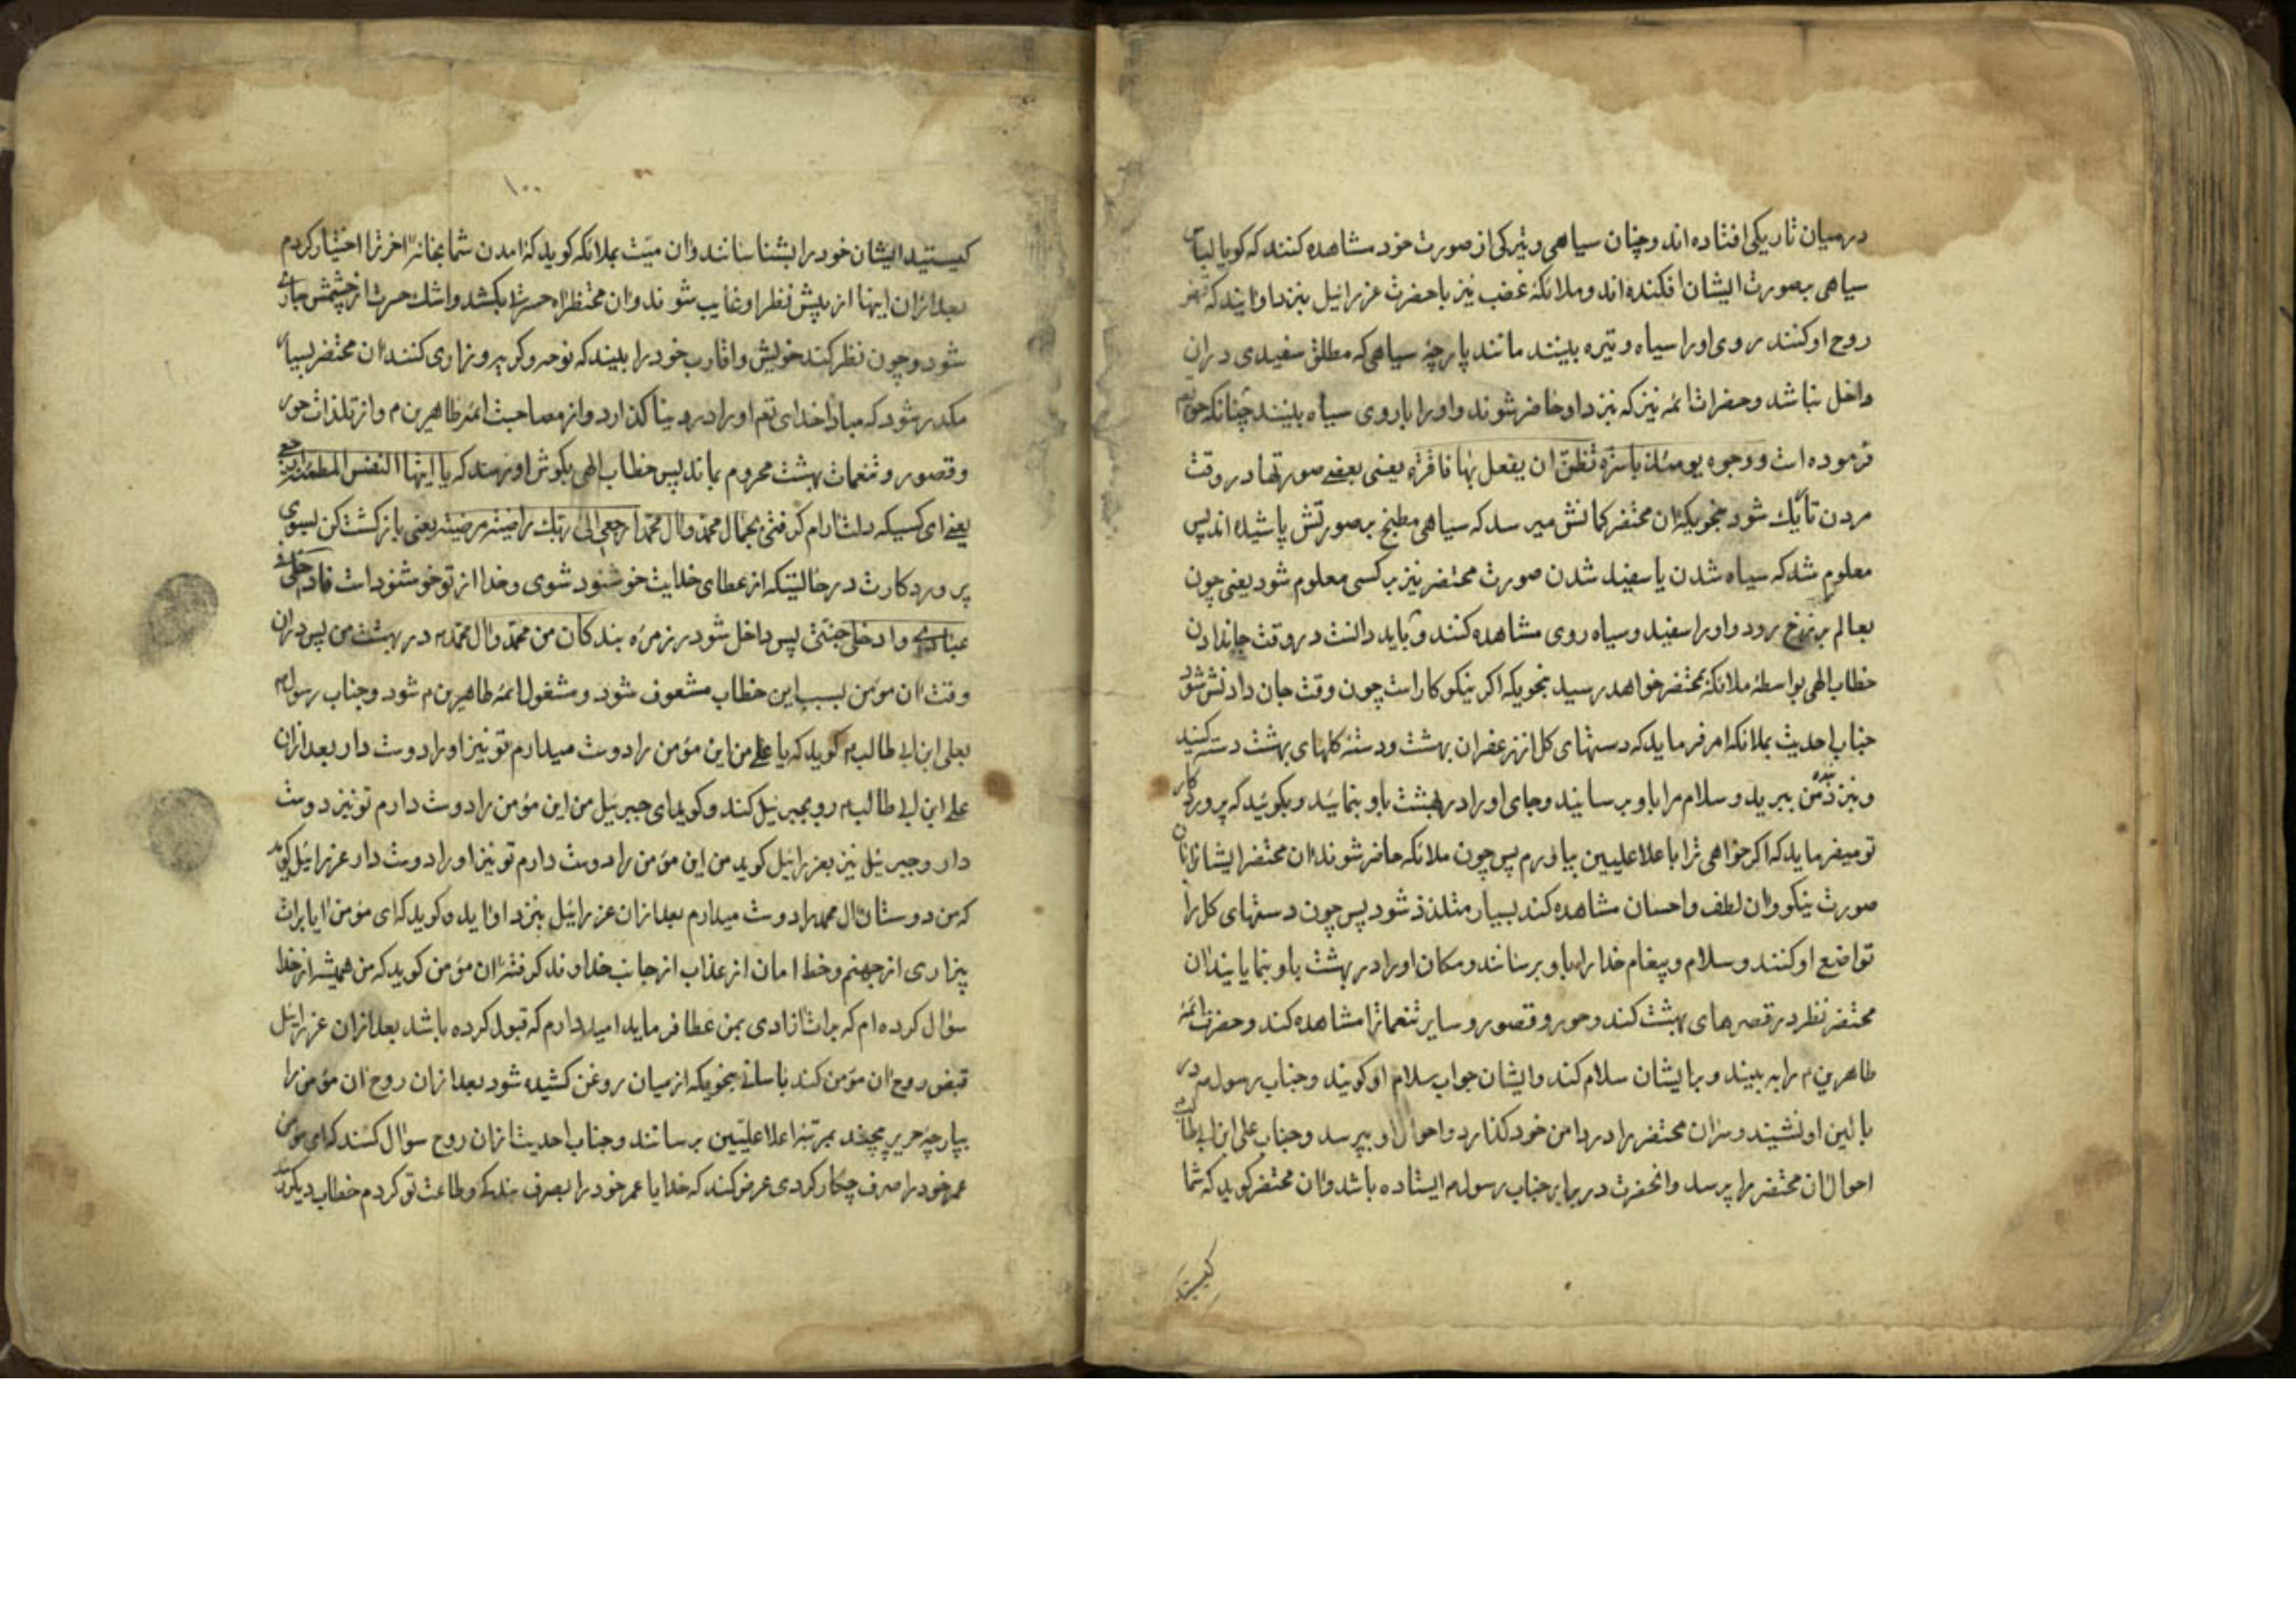 در میان تاریکی افتاده اند و چنان سیاهی و تیرکی از صورت خود مشاهده کنند که کویا لباس
سیاهی بصورت ایشان افکنده اند و ملائکهٔ غضب نیز با حضرت عزرائیل بنزد او ایند که قبض
روح او کنند روی او را سیاه و تیره بینند مانند پارچهٔ سیاهی که مطلق سفیدی در ان
داخل نباشد و حضرات ائمه نیز که بنزد او حاضر شوند و او را با روی سیاه بینند چنانکه حق تع
فرموده است و وجوه یومئذ باسرة تظن ان یفعل بها فاقرة یعنی بعضی صورتها در وقت
مردن تاریک شود بنحویکه ان محتضر کمانش میرسد که سیاهی مطبخ بر صورتش پاشیده اند پس
معلوم شد که سیاه شدن یا سفید شدن صورت محتضر نیز بر کسی معلوم شود یعنی چون
بعالم برزخ رود و او را سفید و سیاه روی مشاهده کنند و باید دانست در وقت جان دادن
خطاب الهی بواسطهٔ ملائکه بمحتضر خواهد رسید بنحویکه اکر نیکو کار است چون وقت جان دادنش شود
جناب احدیت بملائکه امر فرماید که دستهای کل از زعفران بهشت و دستهٔ کلهای بهشت دسته کنید
و بنزد بندهٔ من ببرید و سلام مرا باو برسانید و جای او را در بهشت باو بنمایید و بکوئید که پروردکار
تو میفرماید که اکر خواهی ترا باعلا علیین بیاورم پس چون ملائکه حاضر شوند ان محتضر ایشانرا بان
صورت نیکو و ان لطف و احسان مشاهده کند بسیار متلذذ شود پس چون دستهای کل را
تواضع او کنند و سلام و پیغام خدا را باو برسانند و مکان او را در بهشت باو بنمایانند ان
محتضر نظر در قصرهای بهشت کند و حور و قصور و سایر تنعماترا مشاهده کند و حضرت ائمهٔ
طاهرین م را به بیند و بر ایشان سلام کند و ایشان جواب سلام او کویند و جناب رسول م در
بالین او نشیند و سر ان محتضر را در دامن خود کذارد و احوال او بپرسد و جناب علی ابن ابیطالب
احوال ان محتضر را پرسد و انحضرت در برابر جناب رسول م ایستاده باشد و ان محتضر کوید که شما
کیستید
۱۰۰
کیستید ایشان خود را بشناسانند و ان میت بملائکه کوید که امدن شما بخانهٔ اخر ترا اختیار کردم
بعد از ان اینها از پیش نظر او غایب شوند و ان محتظر اه حسرت بکشد و اشک حسرت از چشمش جاری
شود و چون نظر کند خویش و اقارب خود را بیند که نوحه و کریه و زاری کنند ان محتضر بسیار
مکدر شود که مبادا خدای تع او را در دنیا کذارد و از مصاحبت ائمهٔ طاهرین م و از تلذذات حور
و قصور و تنعمات بهشت محروم بماند پس خطاب الهی بکوش او رسد که یا ایتها النفس المطمئنة ارجعی
یعنی ای کسیکه دلت ارام کرفتی بجمال محمد و ال محمد ارجعی الی ربک راضیة مرضیة یعنی باز کشت کن بسوی
پروردکارت در حالتیکه از عطای خدایت خوشنود شوی و خدا از تو خوشنود است فادخلی فی
عبادی وادخلی جنتی پس داخل شو در زمرهٔ بندکان من محمد و ال محمد م در بهشت من پس در ان
وقت ان مؤمن بسبب این خطاب مشعوف شود و مشغول ائمهٔ طاهرین م شود و جناب رسول م
بعلی ابن ابی طالب م کوید که یا علی من این مؤمن را دوست میدارم تو نیز او را دوست دار بعد از ان
علی ابن ابی طالب م رو بجبرئیل کند و کوید ای جبرئیل من این مؤمن را دوست دارم تو نیز دوست
دار و جبرئیل نیز بعزرائیل کوید من این مؤمن را دوست دارم تو نیز او را دوست دار عزرائیل کوید
که من دوستان ال محمد را دوست میدارم بعد از ان عزرائیل بنزد او اید و کوید که ای مؤمن ایا برات
بیزاری از جهنم و خط امان از عذاب از جانب خداوند کرفتهٔ ان مؤمن کوید که من همیشه از خدا
سؤال کرده ام که برات ازادی بمن عطا فرماید امیدوارم که قبول کرده باشد بعد از ان عزرائیل
قبض روح ان مؤمن کند باسانی بنحویکه از میان روغن کشیده شود بعد از ان روح ان مؤمن را
بپارچهٔ حریر پیچند بمرتبهٔ اعلا علیین برسانند و جناب احدیت از ان روح سؤال کنند که ای مؤمن
عمر خود را صرف چکار کردی عرض کند که خدایا عمر خود را بصرف بندکی و طاعت تو کردم خطاب دیکر رسد